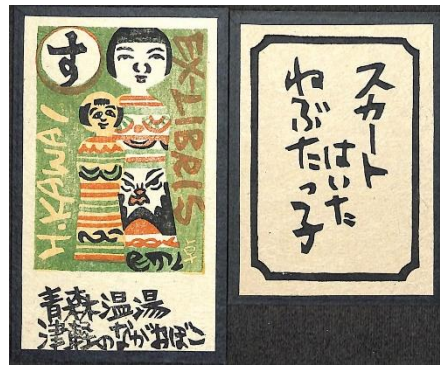 す
EX-LIBRIS
H.KAWAI
青森温湯
津軽のながおぼこ
スカート
はいた
ねぶたっ子